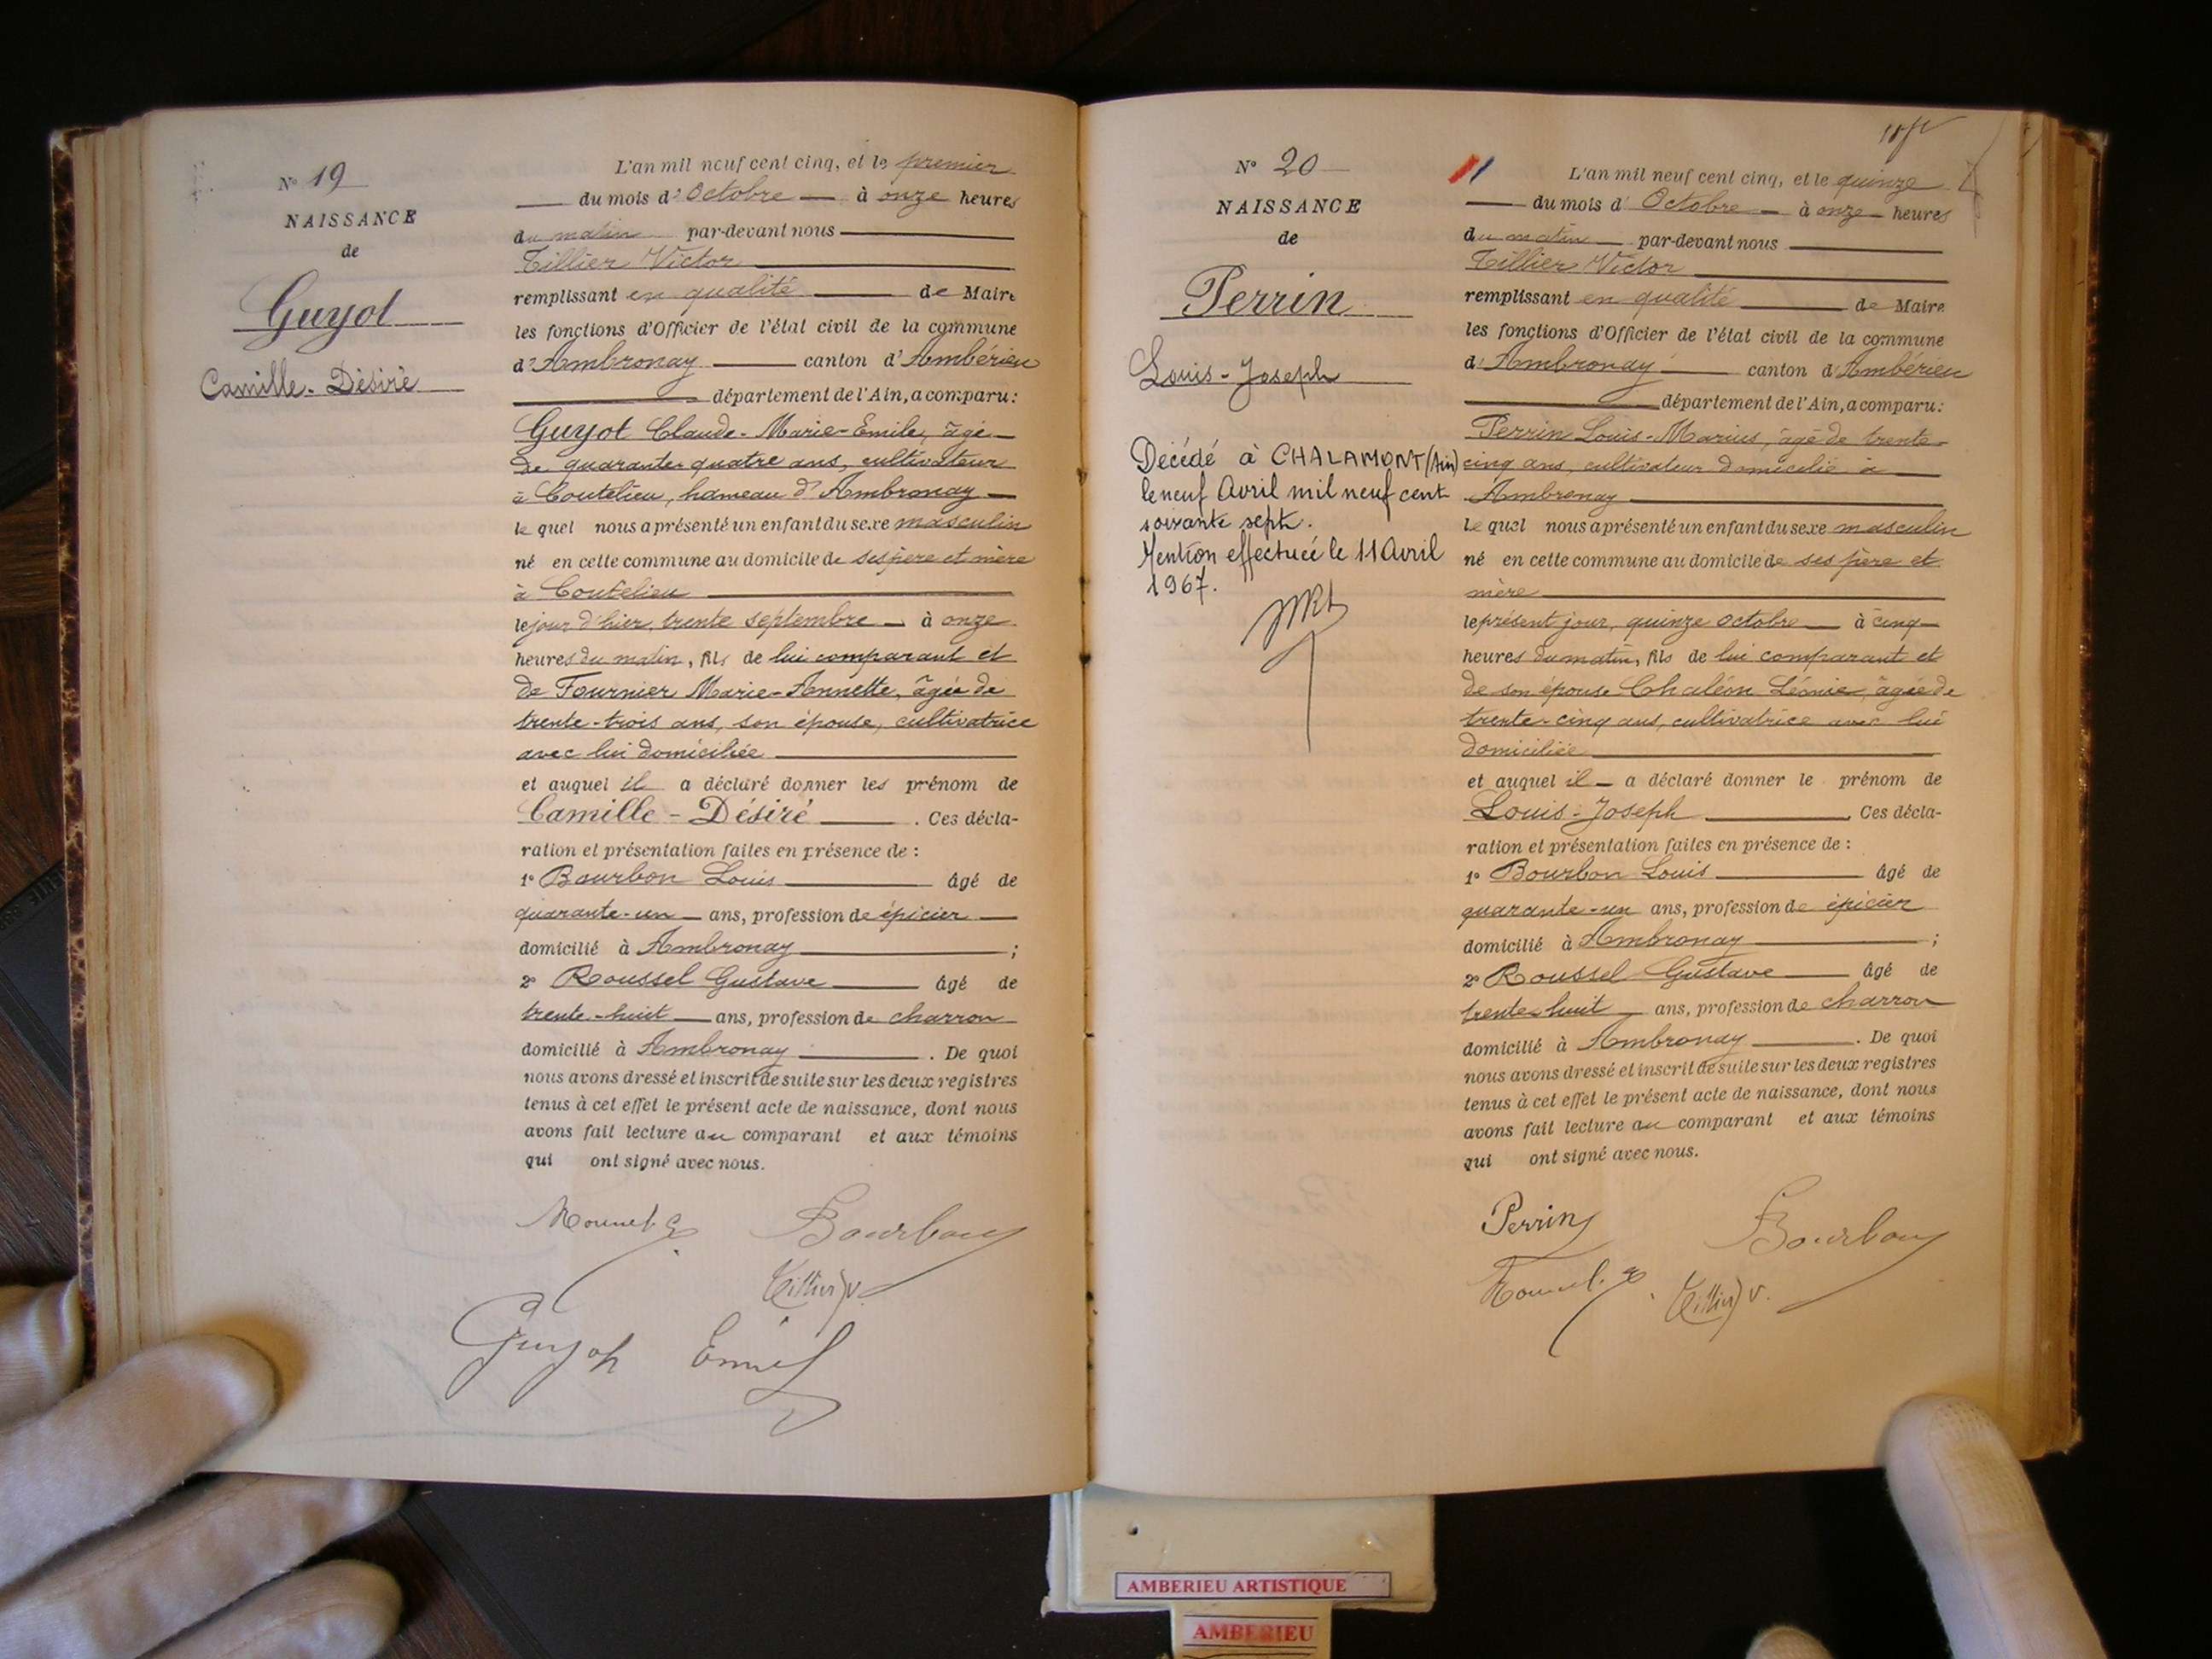 N° 19
NAISSANCE
de
Guyot
Camille-Désiré
L'an mil neuf cent cinq, et le premier
du mois d'Octobre à onze heures
du matin par-devant nous
Tillier Victor
remplissant en qualité de Maire
les fonctions d'Officier de l'état civil de la commune
d'Ambronay canton d'Ambérieu
département de l'Ain, a comparu:
Guyot Claude-Marie-Emile, âgé
de quarante-quatre ans, cultivateur
à Coutelieu, hameau d'Ambronay
le quel nous a présenté un enfant du sexe masculin
né en cette commune au domicile de ses père et mère
à Coutelieu
le jour d'hier, trente septembre à onze
heures du matin, fils de lui comparant et
de Fournier Marie-Annette, âgée de
trente-trois ans, son épouse, cultivatrice
avec lui domiciliée
et auquel il a déclaré donner les prénom de
Camille-Désiré. Ces décla-
ration et présentation faites en présence de :
1° Bourbon Louis âgé de
quarante-un ans, profession de épicier
domicilié à Ambronay ;
2° Roussel Gustave âgé de
trente-huit ans, profession de charron
domicilié à Ambronay. De quoi
nous avons dressé et inscrit de suite sur les deux registres
tenus à cet effet le présent acte de naissance, dont nous
avons fait lecture au comparant et aux témoins
qui ont signé avec nous.
Bourbon
Tillier V.
Guyot Emile
N° 20
NAISSANCE
de
Perrin
Louis-Joseph
Décédé à CHALAMONT (Ain)
le neuf Avril mil neuf cent
soixante sept.
Mention effectuée le 11 Avril
1967.
L'an mil neuf cent cinq, et le quinze
du mois d'Octobre à onze heures
du matin par-devant nous
Tillier Victor
remplissant en qualité de Maire
les fonctions d'Officier de l'état civil de la commune
d'Ambronay canton d'Ambérieu
département de l'Ain, a comparu:
Perrin Louis-Marius, âgé de trente-
cinq ans, cultivateur domicilié à
Ambronay
le quel nous a présenté un enfant du sexe masculin
né en cette commune au domicile de ses père et
mère
le présent jour, quinze octobre à cinq
heures du matin, fils de lui comparant et
de son épouse Léonie, âgée de
trente-cinq ans, cultivatrice avec lui
domiciliée
et auquel il a déclaré donner le prénom de
Louis-Joseph. Ces décla-
ration et présentation faites en présence de :
1° Bourbon Louis âgé de
quarante-un ans, profession de épicier
domicilié à Ambronay ;
2° Roussel Gustave âgé de
trente-huit ans, profession de charron
domicilié à Ambronay. De quoi
nous avons dressé et inscrit de suite sur les deux registres
tenus à cet effet le présent acte de naissance, dont nous
avons fait lecture au comparant et aux témoins
qui ont signé avec nous.
Perrin
Bourbon
Tillier V.
AMBERIEU ARTISTIQUE
AMBERIEU